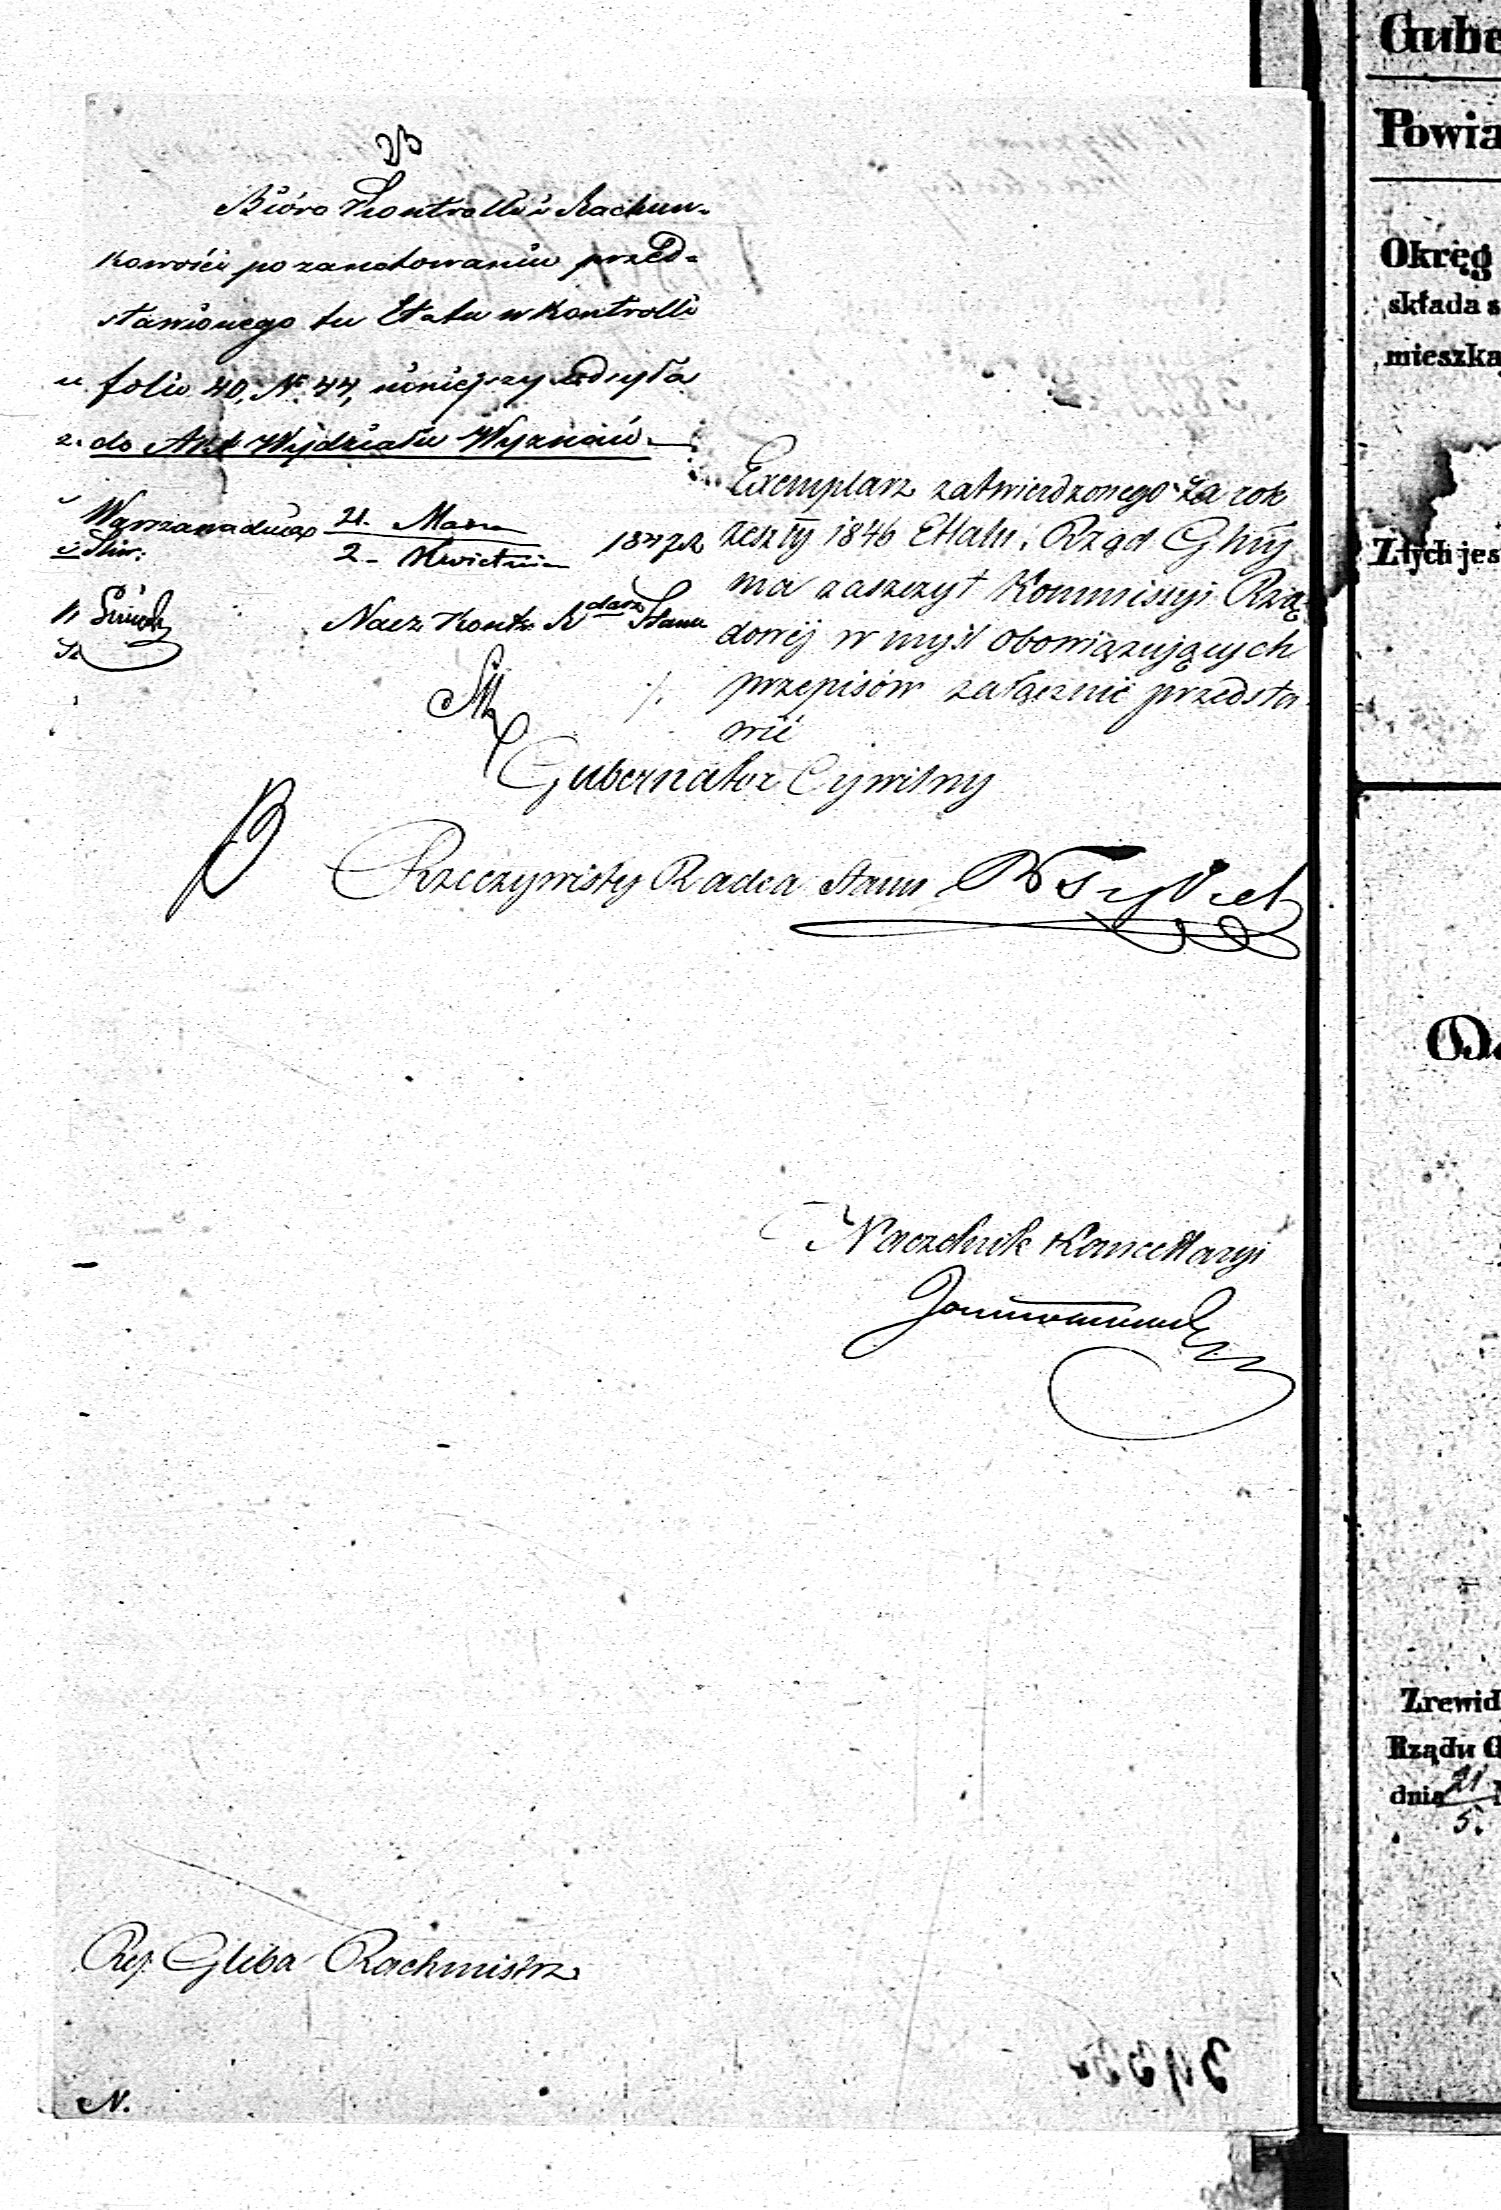 Bióro Kontrolli i Rachun-
kowości po zanotowaniu przed-
stawionego tu Etatu w Kontrolli
folio 40, № 44, niniejszy odsyła
do Akt Wydziału Wyznań.
Warszawa dnia 21. Marca
2. Kwietnia 1847 R
Nacz. Kontr. Rdarz Stanu
Exemplarz zatwierdzonego za rok
zeszły 1846 Ettatu, Rząd Gbny
ma zaszczyt Kommissyi Rzą-
dowéj w myśl obowiązujących
przepisów załącznie przedsta-
wić
Gubernator Cywilny
Rzeczywisty Radca Stanu
Naczelnik Kancellaryi
Ref. Gleba Rachmistrz
N.
Gube
Powia
Okręg
składa s
mieszka
Złych jes
Zrewid
Rządu G
dnia 21
5.